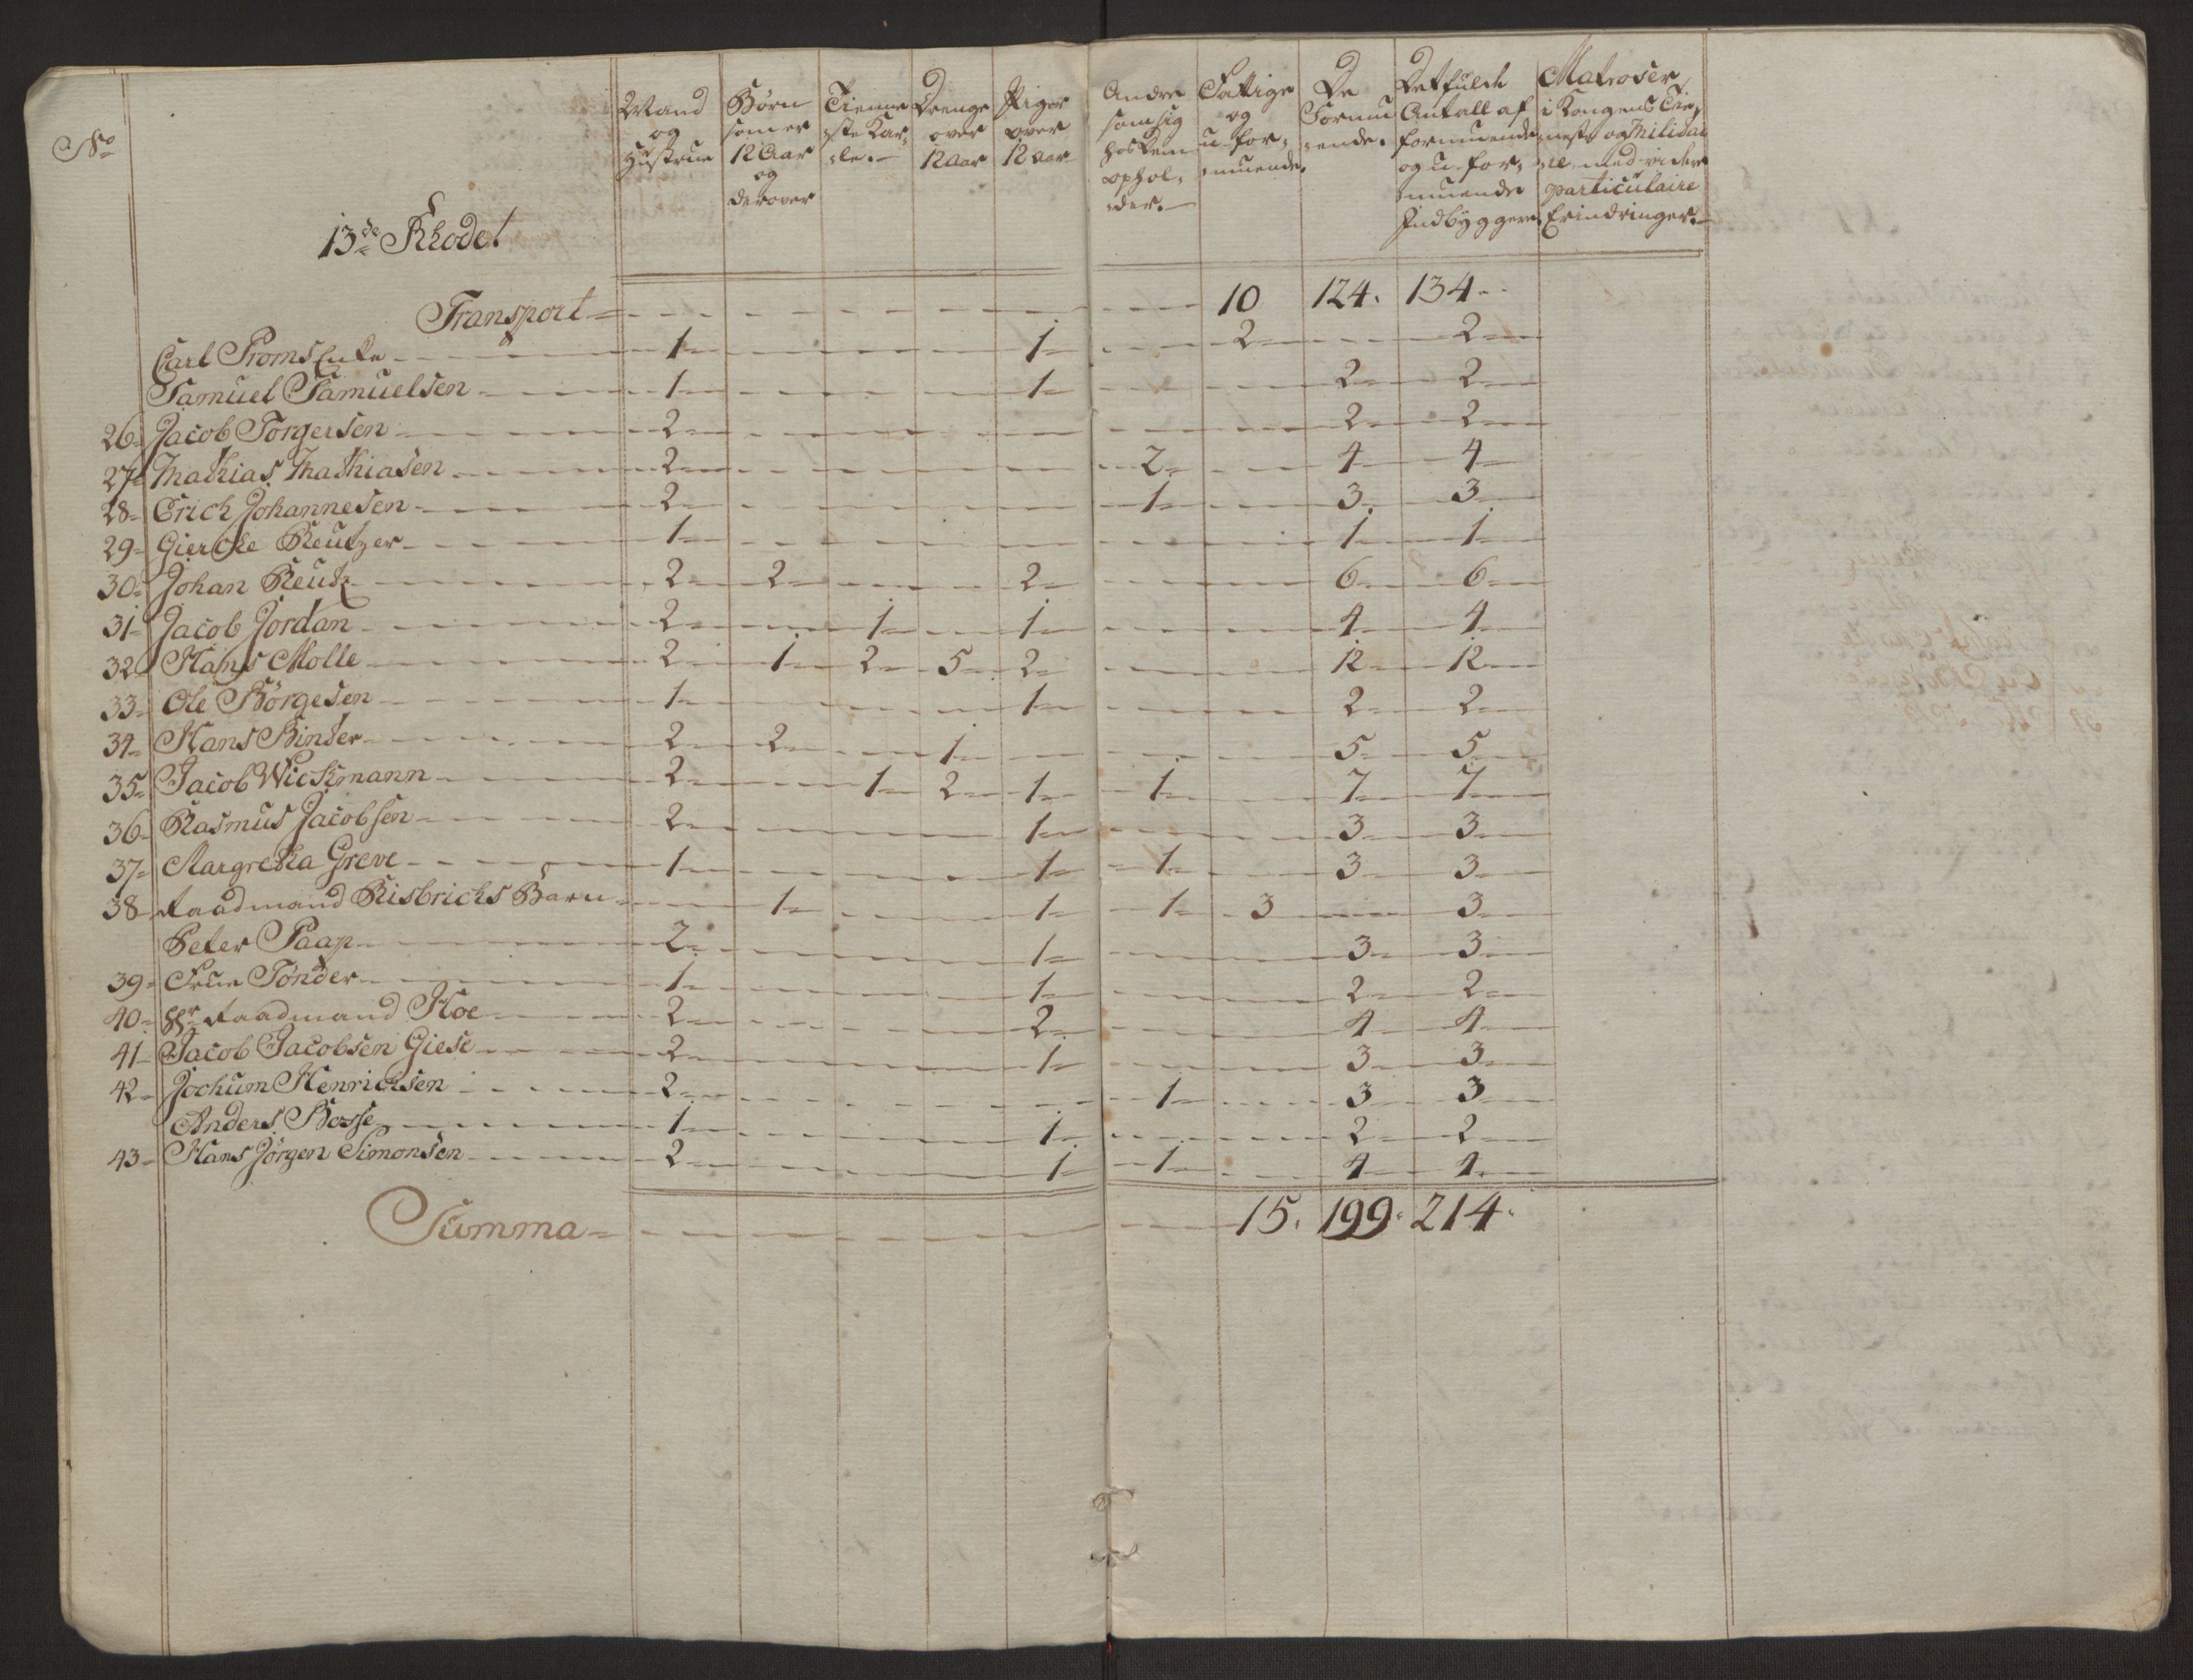 No
13de Rhode
Mand og Hustrue | Børn som er 12 Aar og derover | Tienneste Karle | Drenge over 12 Aar | Piger over 12 Aar | Andre som sig hos dem opholder | Fattige og u-formuende | De Formuende | Det fulde Antall af formuende og u-formuende Indbyggere | Matroser i Kongens Tienneste og Militaire med videre particulaire Erindringer
Transport - 10 124. 134
Carl Proms Enke 1 1 2 2
Samuel Samuelsen 1 1 2 2
26 Jacob Torgersen 2 2 2
27 Mathias Mathiasen 2 2 4 4
28 Erich Johannesen 2 1 3 3
29 Giercke Reutzer 1 1 1
30 Johan Reutz 2 2 2 6 6
31 Jacob Jordan 2 1 1 4 4
32 Hans Molle 2 1 2 5 2 12 12
33 Ole Børgesen 1 1 2 2
34 Hans Binder 2 2 1 5 5
35 Jacob Wickmann 2 1 2 1 1 7 7
36 Rasmus Jacobsen 2 1 3 3
37 Margretha Greve 1 1 1 3 3
38 Raadmand Risbrichs Barn 1 1 1 3 3
Peter Paap 2 1 3 3
39 Frue Tønder 1 1 2 2
40 Hr Raadmand Hoe 2 2 4 4
41 Jacob Jacobsen Giese 2 1 3 3
42 Jochum Henrichsen 2 1 3 3
Anders Bosse 1 1 2 2
43 Hans Jørgen Simonsen 2 1 1 4 4
Summa 15. 199. 214.